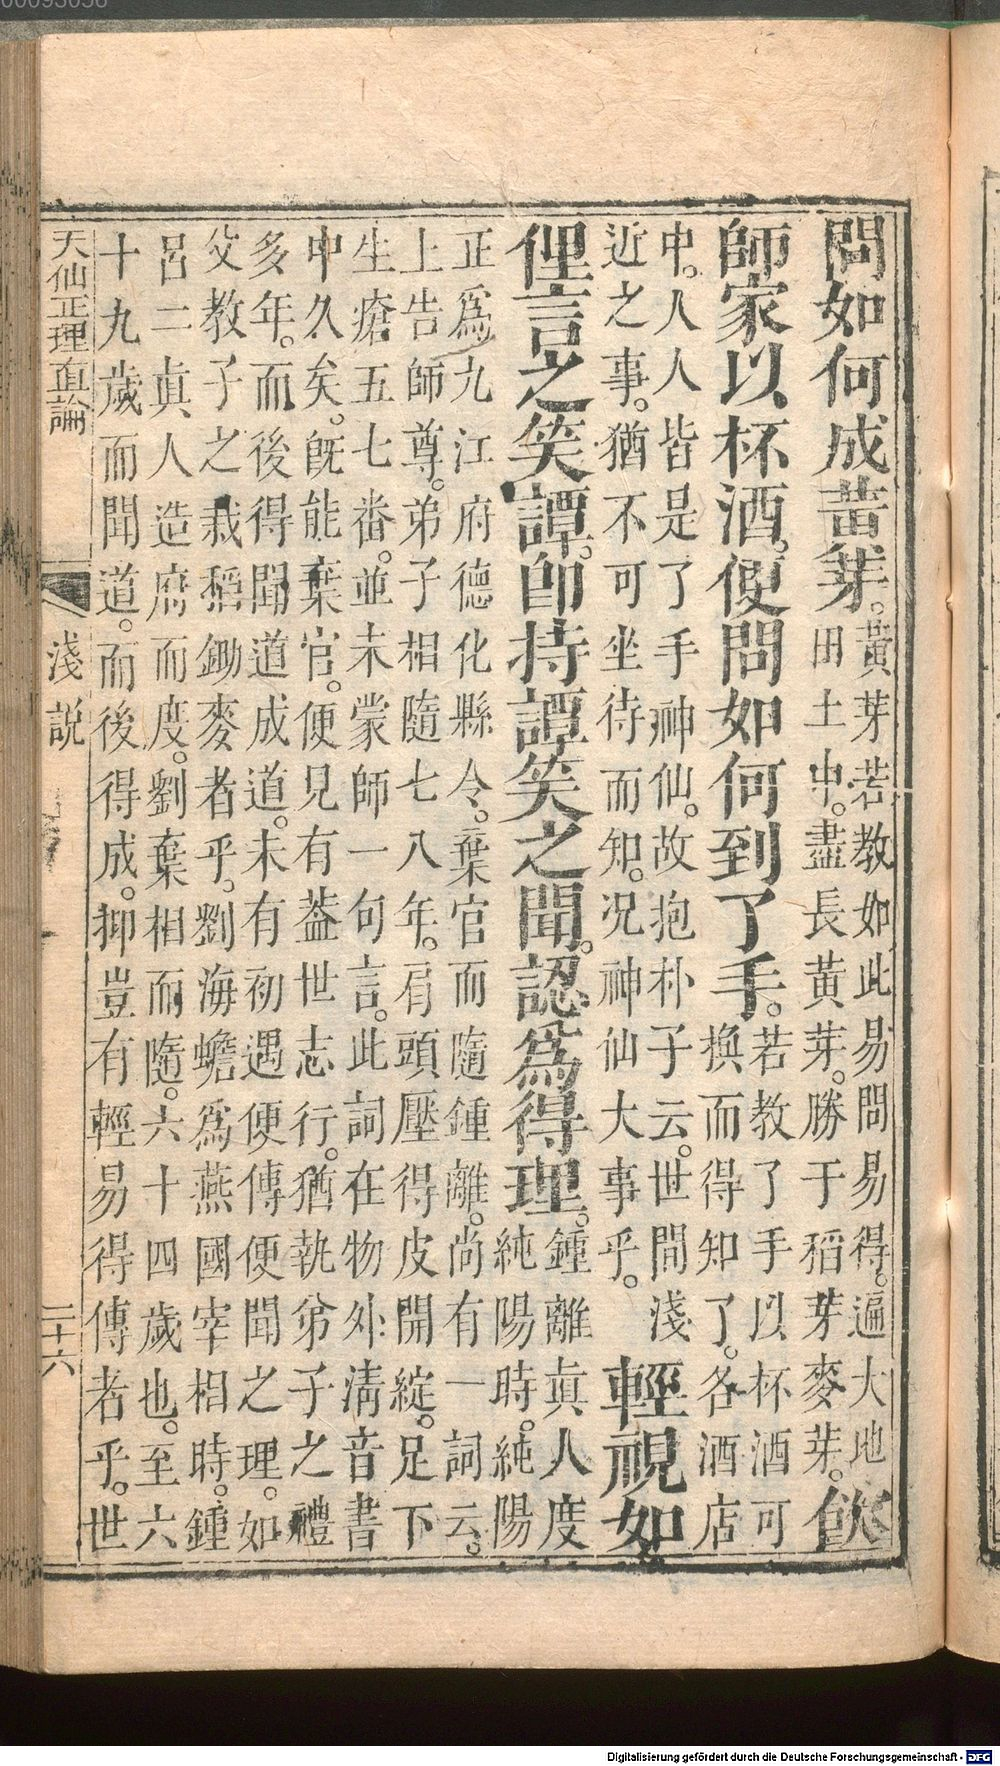 問如何成黃芽。黃芽若教如此易問易得。遍大地
田土中。盡長黃芽。勝于稻芽麥芽。飲
師家以杯酒。便問如何到了手。若教了手以杯酒可
換而得知了。各酒店
中。人人皆是了手神仙。故抱朴子云。世間淺
近之事。猶不可坐待而知。况神仙大事乎。輕視如
俚言之笑譚。卽持譚笑之聞。認爲得理。鍾離眞人度
純陽時。純陽
正爲九江府德化縣令。棄官而隨鍾離。尚有一詞云。
上告師尊。弟子相隨七八年。肩頭壓得皮開綻。足下
生瘡五七番。並未蒙師一句言。此詞在物外清音書
中久矣。旣能棄官。便見有葢世志行。猶執弟子之禮
多年。而後得聞道成道。未有初遇便傳便聞之理。如
父教子之栽稻鋤麥者乎。劉海蟾爲燕國宰相時。鍾
呂二眞人造府而度。劉棄相而隨。六十四歲也。至六
十九歲而聞道。而後得成。抑豈有輕易得傳者乎。世
天仙正理直論
淺説
二十六
00093056
Digitalisierung gefördert durch die Deutsche Forschungsgemeinschaft - DFG